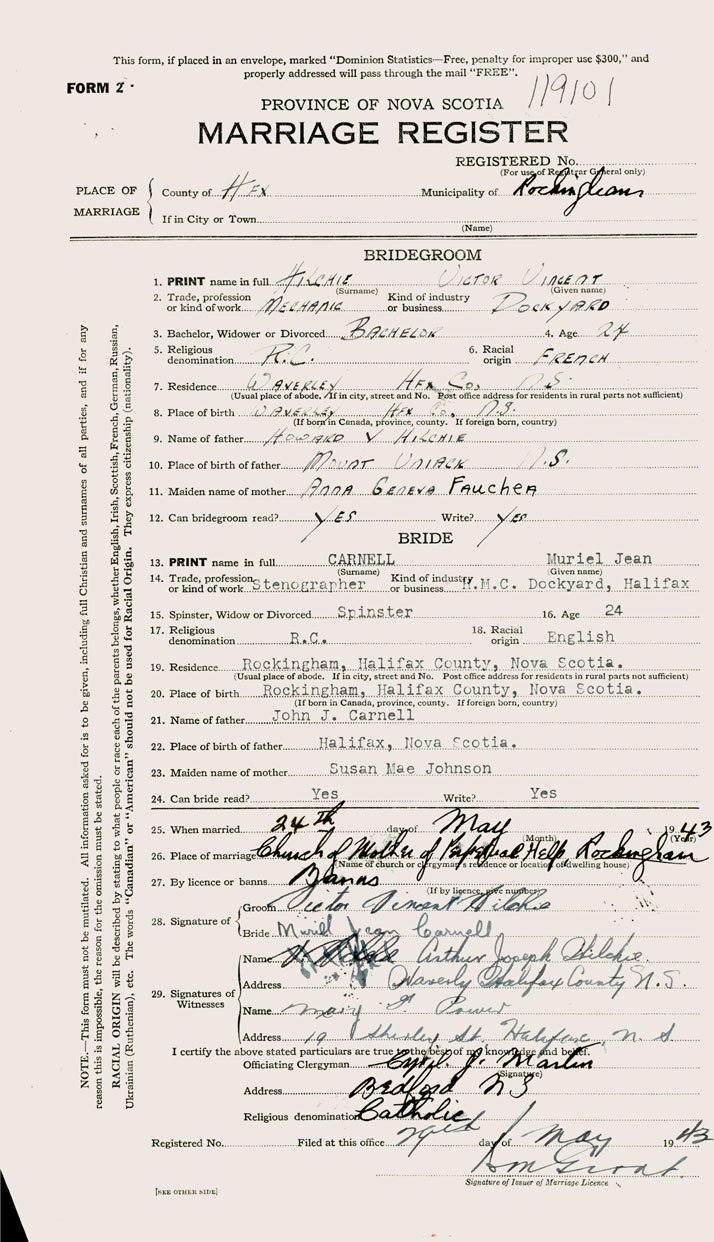 This form, if placed in an envelope, marked "Dominion Statistics—Free, penalty for improper use $300," and
properly addressed will pass through the mail "FREE".
FORM 2.
119101
PROVINCE OF NOVA SCOTIA
MARRIAGE REGISTER
REGISTERED No.
(For use of Registrar General only)
PLACE OF MARRIAGE
County of Hfx Municipality of Rockingham
If in City or Town
(Name)
BRIDEGROOM
1. PRINT name in full HILCHIE VICTOR VINCENT
(Surname) (Given name)
2. Trade, profession or kind of work MECHANIC Kind of industry or business DOCKYARD
3. Bachelor, Widower or Divorced BACHELOR 4. Age 24
5. Religious denomination R.C. 6. Racial origin FRENCH
7. Residence WAVERLEY HFX CO. N.S.
(Usual place of abode. If in city, street and No. Post office address for residents in rural parts not sufficient)
8. Place of birth WAVERLEY HFX CO, N.S.
(If born in Canada, province, county. If foreign born, country)
9. Name of father HOWARD V HILCHIE
10. Place of birth of father MOUNT UNIACK N.S.
11. Maiden name of mother ANNA GENEVA FAUCHEA
12. Can bridegroom read? YES Write? YES
BRIDE
13. PRINT name in full CARNELL Muriel Jean
(Surname) (Given name)
14. Trade, profession or kind of work Stenographer Kind of industry or business H.M.C. Dockyard, Halifax
15. Spinster, Widow or Divorced Spinster 16. Age 24
17. Religious denomination R.C. 18. Racial origin English
19. Residence Rockingham, Halifax County, Nova Scotia.
(Usual place of abode. If in city, street and No. Post office address for residents in rural parts not sufficient)
20. Place of birth Rockingham, Halifax County, Nova Scotia.
(If born in Canada, province, county. If foreign born, country)
21. Name of father John J. Carnell
22. Place of birth of father Halifax, Nova Scotia.
23. Maiden name of mother Susan Mae Johnson
24. Can bride read? Yes Write? Yes
25. When married 24th day of May 1943
(Month) (Year)
26. Place of marriage Church of Mother of Perpetual Help, Rockingham
(Name of church or clergyman's residence or location of dwelling house)
27. By licence or banns Banns
(If by licence, give number)
28. Signature of
Groom Victor Vincent Hilchie
Bride Muriel Jean Carnell
29. Signatures of Witnesses
Name Arthur Joseph Hilchie
Address Waverly Halifax County N.S.
Name Mary F. Power
Address 19 Shirley St. Halifax, N.S
I certify the above stated particulars are true to the best of my knowledge and belief.
Officiating Clergyman Cyril J. Martin
(Signature)
Address Bedford NS
Religious denomination Catholic
Registered No. Filed at this office day of May 1943
Signature of Issuer of Marriage Licence
[SEE OTHER SIDE]
NOTE.—This form must not be mutilated. All information asked for is to be given, including full Christian and surnames of all parties, and if for any
reason this is impossible, the reason for the omission must be stated.
RACIAL ORIGIN will be described by stating to what people or race each of the parents belongs, whether English, Irish, Scottish, French, German, Russian,
Ukrainian (Ruthenian), etc. The words "Canadian" or "American" should not be used for Racial Origin. They express citizenship (nationality).